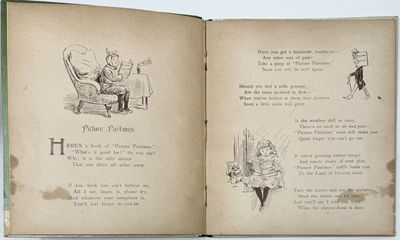 Picture Pastimes.
HERE'S a book of "Picture Pastimes,"
"What's it good for?" do you say?
Why, it is the only doctor
That can drive all aches away.
If you think you can't believe me,
All I say, dears, is, please try,
And whatever your complaint is,
You'll feel better by-and-by.
Have you got a headache, toothache—
Any other sort of pain?
Take a peep at "Picture Pastimes,"
Soon you will be well again.
Should you feel a trifle grumpy,
Are the tears inclined to flow—
When you've looked at these nice pictures
Soon a little smile will grow.
Is the weather dull or rainy,
There's no need to sit and pout—
"Picture Pastimes" soon will make you
Quite forget you can't go out.
If you're getting rather sleepy,
And you're weary of your play,
"Picture Pastimes" will lead you
To the Land of Dreams away.
Turn the leaves and see the pictures,
Read the stories one by one,
And you'll say I told you truly
When the picture-book is done.